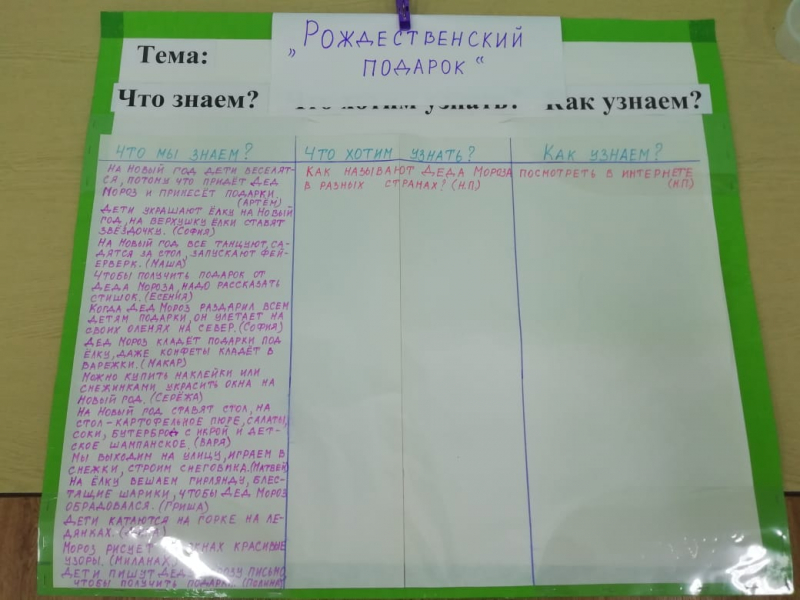 „РОЖДЕСТВЕНСКИЙ
ПОДАРОК“
Тема:
Что знаем? что хотим узнать? Как узнаем?
ЧТО МЫ ЗНАЕМ?
НА НОВЫЙ ГОД ДЕТИ ВЕСЕЛЯТ-
СЯ, ПОТОМУ ЧТО ПРИДЁТ ДЕД
МОРОЗ И ПРИНЕСЁТ ПОДАРКИ.
(АРТЁМ)
ДЕТИ УКРАШАЮТ ЁЛКУ НА НОВЫЙ
ГОД, НА ВЕРХУШКУ ЁЛКИ СТАВЯТ
ЗВЁЗДОЧКУ. (СОФИЯ)
НА НОВЫЙ ГОД ВСЕ ТАНЦУЮТ, СА-
ДЯТСЯ ЗА СТОЛ, ЗАПУСКАЮТ ФЕЙ-
ЕРВЕРК. (МАША)
ЧТОБЫ ПОЛУЧИТЬ ПОДАРОК ОТ
ДЕДА МОРОЗА, НАДО РАССКАЗАТЬ
СТИШОК. (ЕСЕНИЯ)
КОГДА ДЕД МОРОЗ РАЗДАРИЛ ВСЕМ
ДЕТЯМ ПОДАРКИ, ОН УЛЕТАЕТ НА
СВОИХ ОЛЕНЯХ НА СЕВЕР. (СОФИЯ)
ДЕД МОРОЗ КЛАДЁТ ПОДАРКИ ПОД
ЁЛКУ, ДАЖЕ КОНФЕТЫ КЛАДЁТ В
ВАРЕЖКИ. (МАКАР)
МОЖНО КУПИТЬ НАКЛЕЙКИ ИЛИ
СНЕЖИНКАМИ УКРАСИТЬ ОКНА НА
НОВЫЙ ГОД. (СЕРЁЖА)
НА НОВЫЙ ГОД СТАВЯТ СТОЛ, НА
СТОЛ - КАРТОФЕЛЬНОЕ ПЮРЕ, САЛАТЫ,
СОКИ, БУТЕРБРОД С ИКРОЙ И ДЕТ-
СКОЕ ШАМПАНСКОЕ. (ВАРЯ)
МЫ ВЫХОДИМ НА УЛИЦУ, ИГРАЕМ В
СНЕЖКИ, СТРОИМ СНЕГОВИКА. (МАТВЕЙ)
НА ЁЛКУ ВЕШАЕМ ГИРЛЯНДУ, БЛЕС-
ТЯЩИЕ ШАРИКИ, ЧТОБЫ ДЕД МОРОЗ
ОБРАДОВАЛСЯ. (ГРИША)
ДЕТИ КАТАЮТСЯ НА ГОРКЕ НА ЛЕ-
ДЯНКАХ.
МОРОЗ РИСУЕТ КРАСИВЫЕ
УЗОРЫ. (МИЛАНА)
ДЕТИ ПИШУТ ДЕДУ МОРОЗУ ПИСЬМО,
ЧТОБЫ ПОЛУЧИТЬ ПОДАРКИ. (ПОЛИНА)
ЧТО ХОТИМ УЗНАТЬ?
КАК НАЗЫВАЮТ ДЕДА МОРОЗА
В РАЗНЫХ СТРАНАХ? (Н.П)
КАК УЗНАЕМ?
ПОСМОТРЕТЬ В ИНТЕРНЕТЕ
(Н.П)